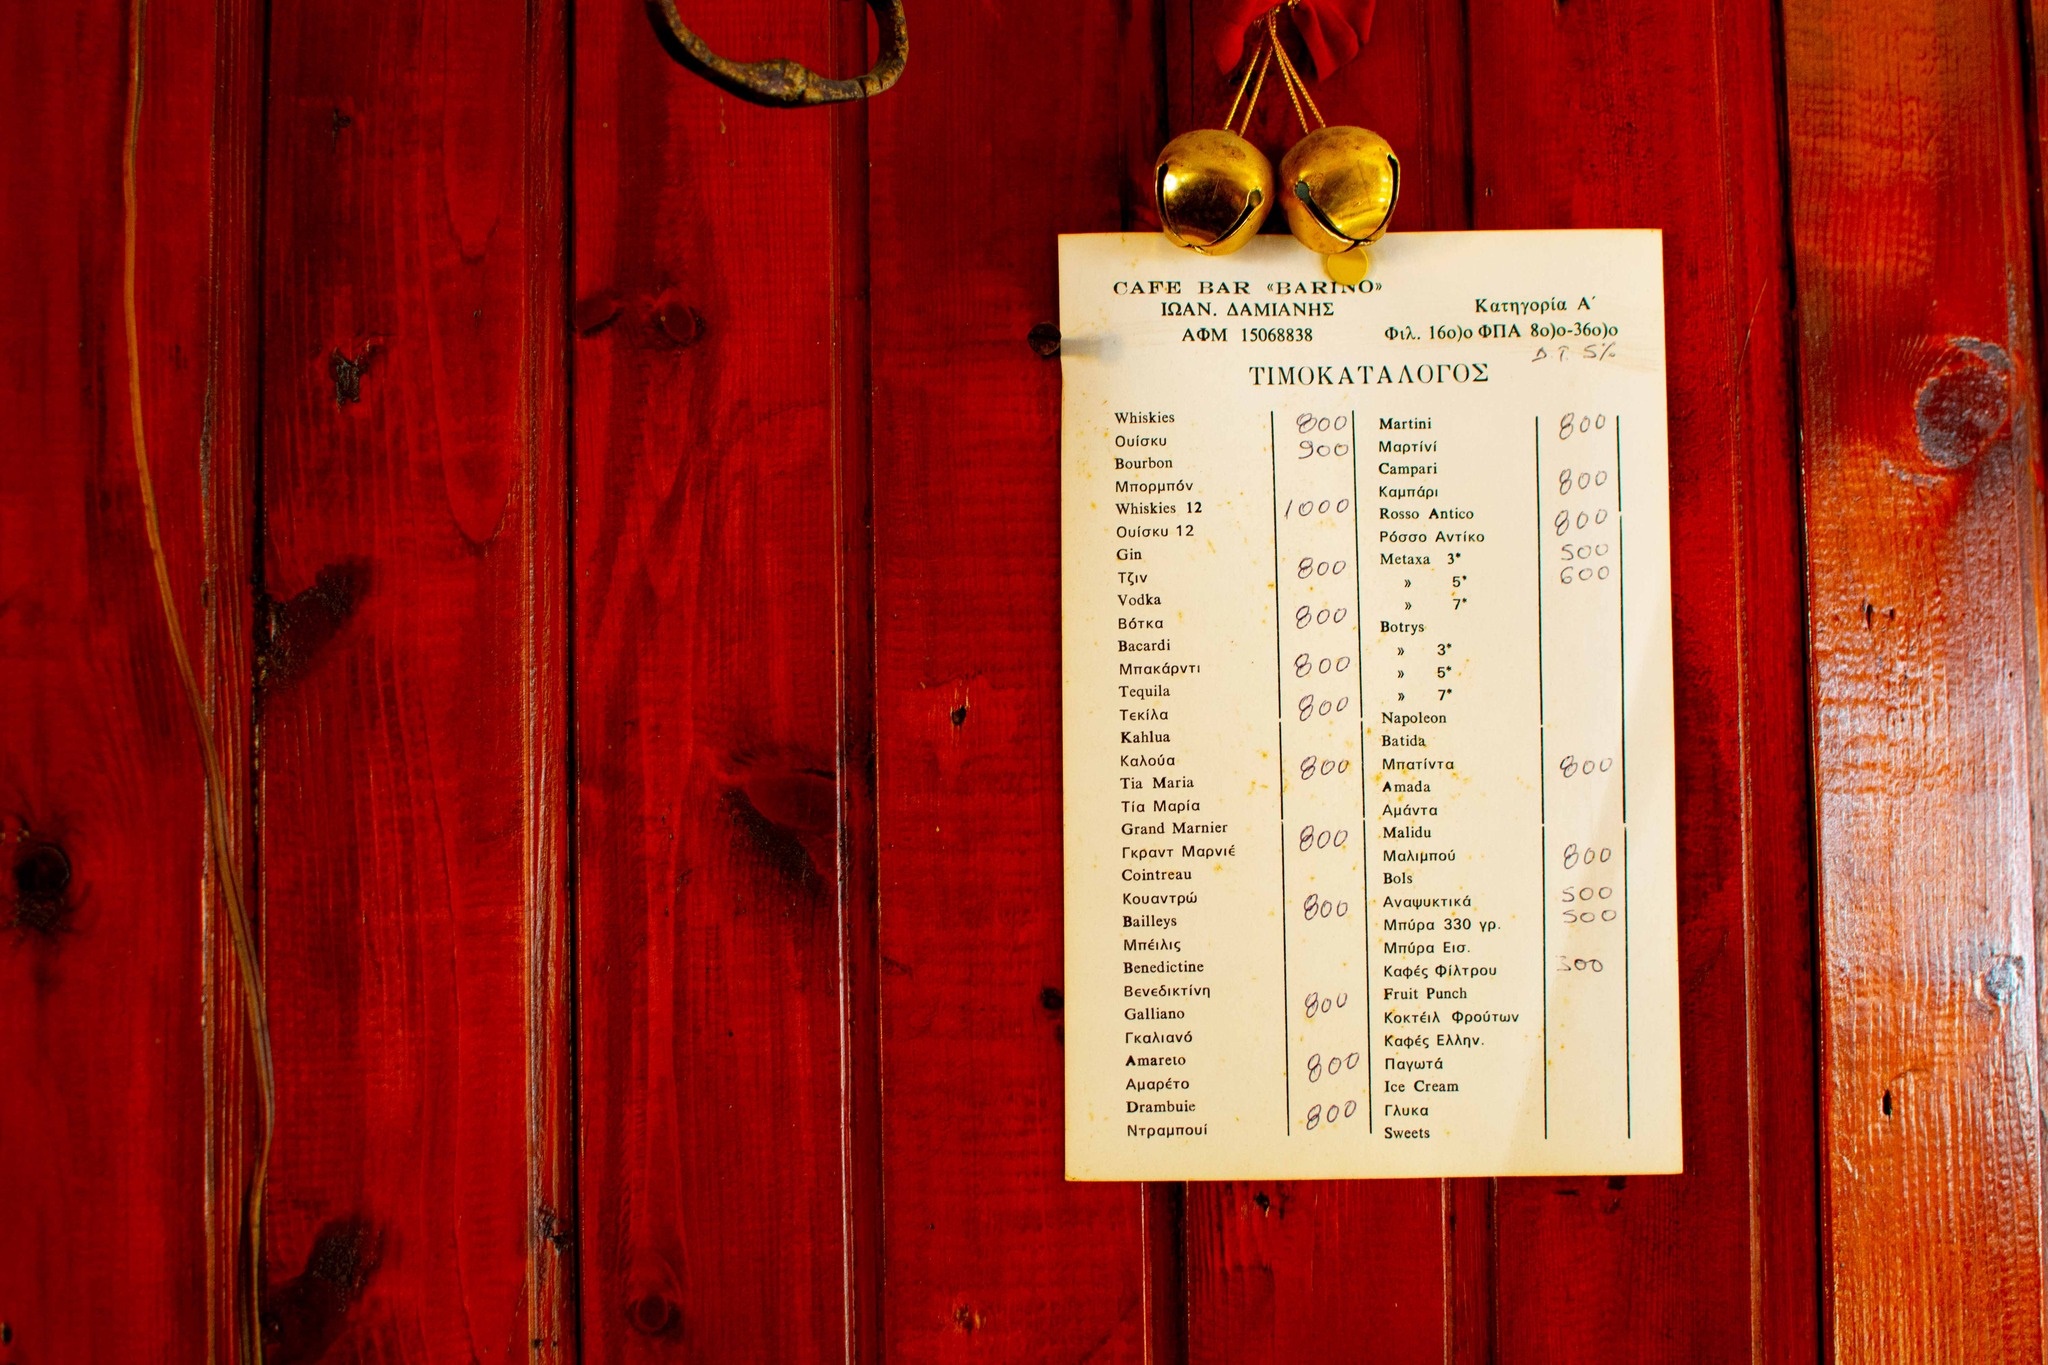 CAFE BAR «BARINO»
ΙΩΑΝ. ΔΑΜΙΑΝΗΣ
ΑΦΜ 15068838
Κατηγορία Α΄
Φιλ. 16ο)ο ΦΠΑ 8ο)ο-36ο)ο
Δ.Τ. 5%
ΤΙΜΟΚΑΤΑΛΟΓΟΣ
Whiskies 800
Ουίσκυ 900
Bourbon
Μπορμπόν
Whiskies 12 1000
Ουίσκυ 12
Gin
Τζιν 800
Vodka
Βότκα 800
Bacardi
Μπακάρντι 800
Tequila
Τεκίλα 800
Kahlua
Καλούα 800
Tia Maria
Τία Μαρία
Grand Marnier
Γκραντ Μαρνιέ 800
Cointreau
Κουαντρώ 800
Bailleys
Μπέιλις
Benedictine
Βενεδικτίνη
Galliano 800
Γκαλιανό
Amareto 800
Αμαρέτο
Drambuie 800
Ντραμπουί
Martini 800
Μαρτίνί
Campari
Καμπάρι 800
Rosso Antico 800
Ρόσσο Αντίκο
Metaxa 3* 500
» 5* 600
» 7*
Botrys
» 3*
» 5*
» 7*
Napoleon
Batida
Μπατίντα 800
Amada
Αμάντα
Malidu
Μαλιμπού 800
Bols
Αναψυκτικά 500
Μπύρα 330 γρ. 500
Μπύρα Εισ.
Καφές Φίλτρου 300
Fruit Punch
Κοκτέιλ Φρούτων
Καφές Ελλην.
Παγωτά
Ice Cream
Γλυκα
Sweets